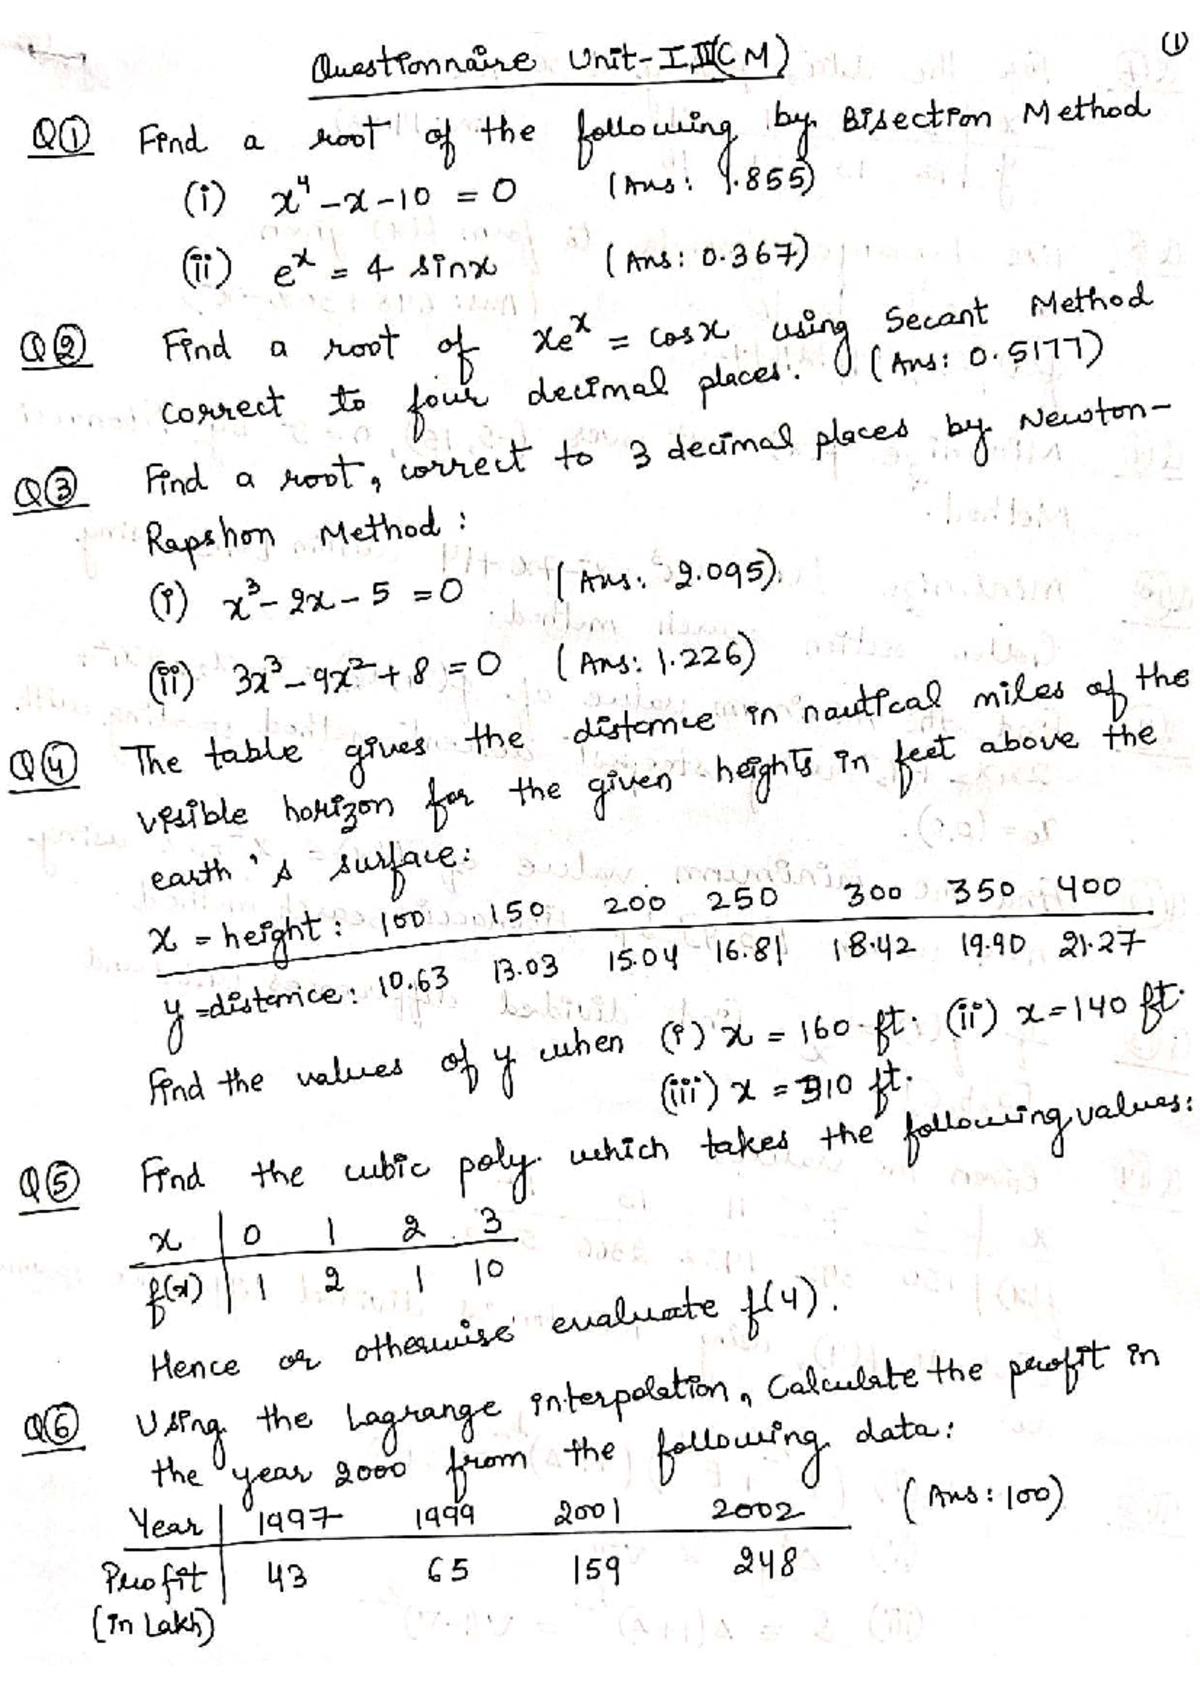 (1)
Questionnaire Unit-I,II(CM)
Q① Find a root of the following by Bisection Method
(i) x⁴-x-10 = 0 (Ans: 1.855)
(ii) eˣ = 4 sinx (Ans: 0.367)
Q② Find a root of xeˣ = cosx using Secant Method
correct to four decimal places. (Ans: 0.5177)
Q③ Find a root, correct to 3 decimal places by Newton-
Rapshon Method:
(i) x³-2x-5=0 (Ans: 2.095)
(ii) 3x³-9x²+8=0 (Ans: 1.226)
Q④ The table gives the distance in nautical miles of the
visible horizon for the given heights in feet above the
earth's surface:
x = height: 100 150 200 250 300 350 400
y =distance: 10.63 13.03 15.04 16.81 18.42 19.90 21.27
Find the values of y when (i) x = 160 ft. (ii) x=140 ft.
(iii) x = 310 ft.
Q⑤ Find the cubic poly. which takes the following values:
x | 0 1 2 3
f(x) | 1 2 1 10
Hence or otherwise evaluate f(4).
Q⑥ Using the Lagrange interpolation, Calculate the profit in
the year 2000 from the following data:
Year | 1997 1999 2001 2002 (Ans: 100)
Profit | 43 65 159 248
(in Lakh)